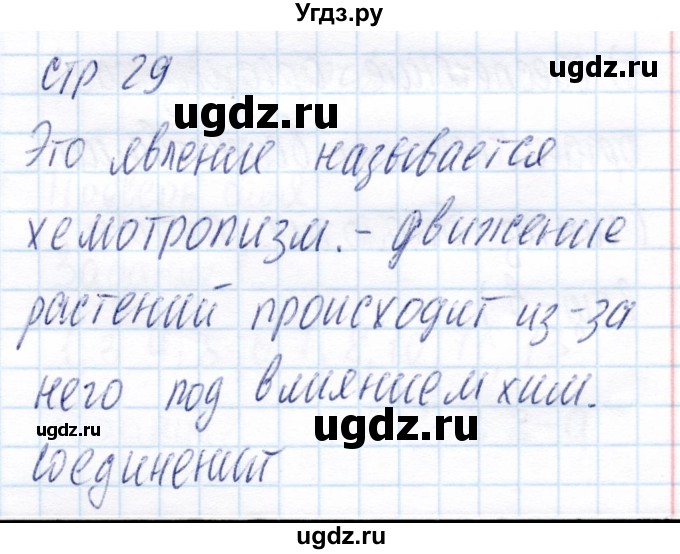 Угдз.ру
стр 29
ugdz.ru
Это явление называется
хемотропизм. - движение
растений происходит из-за
него под влиянием хим.
ugdz.ru ugdz.ru
соединений
ugdz.ru